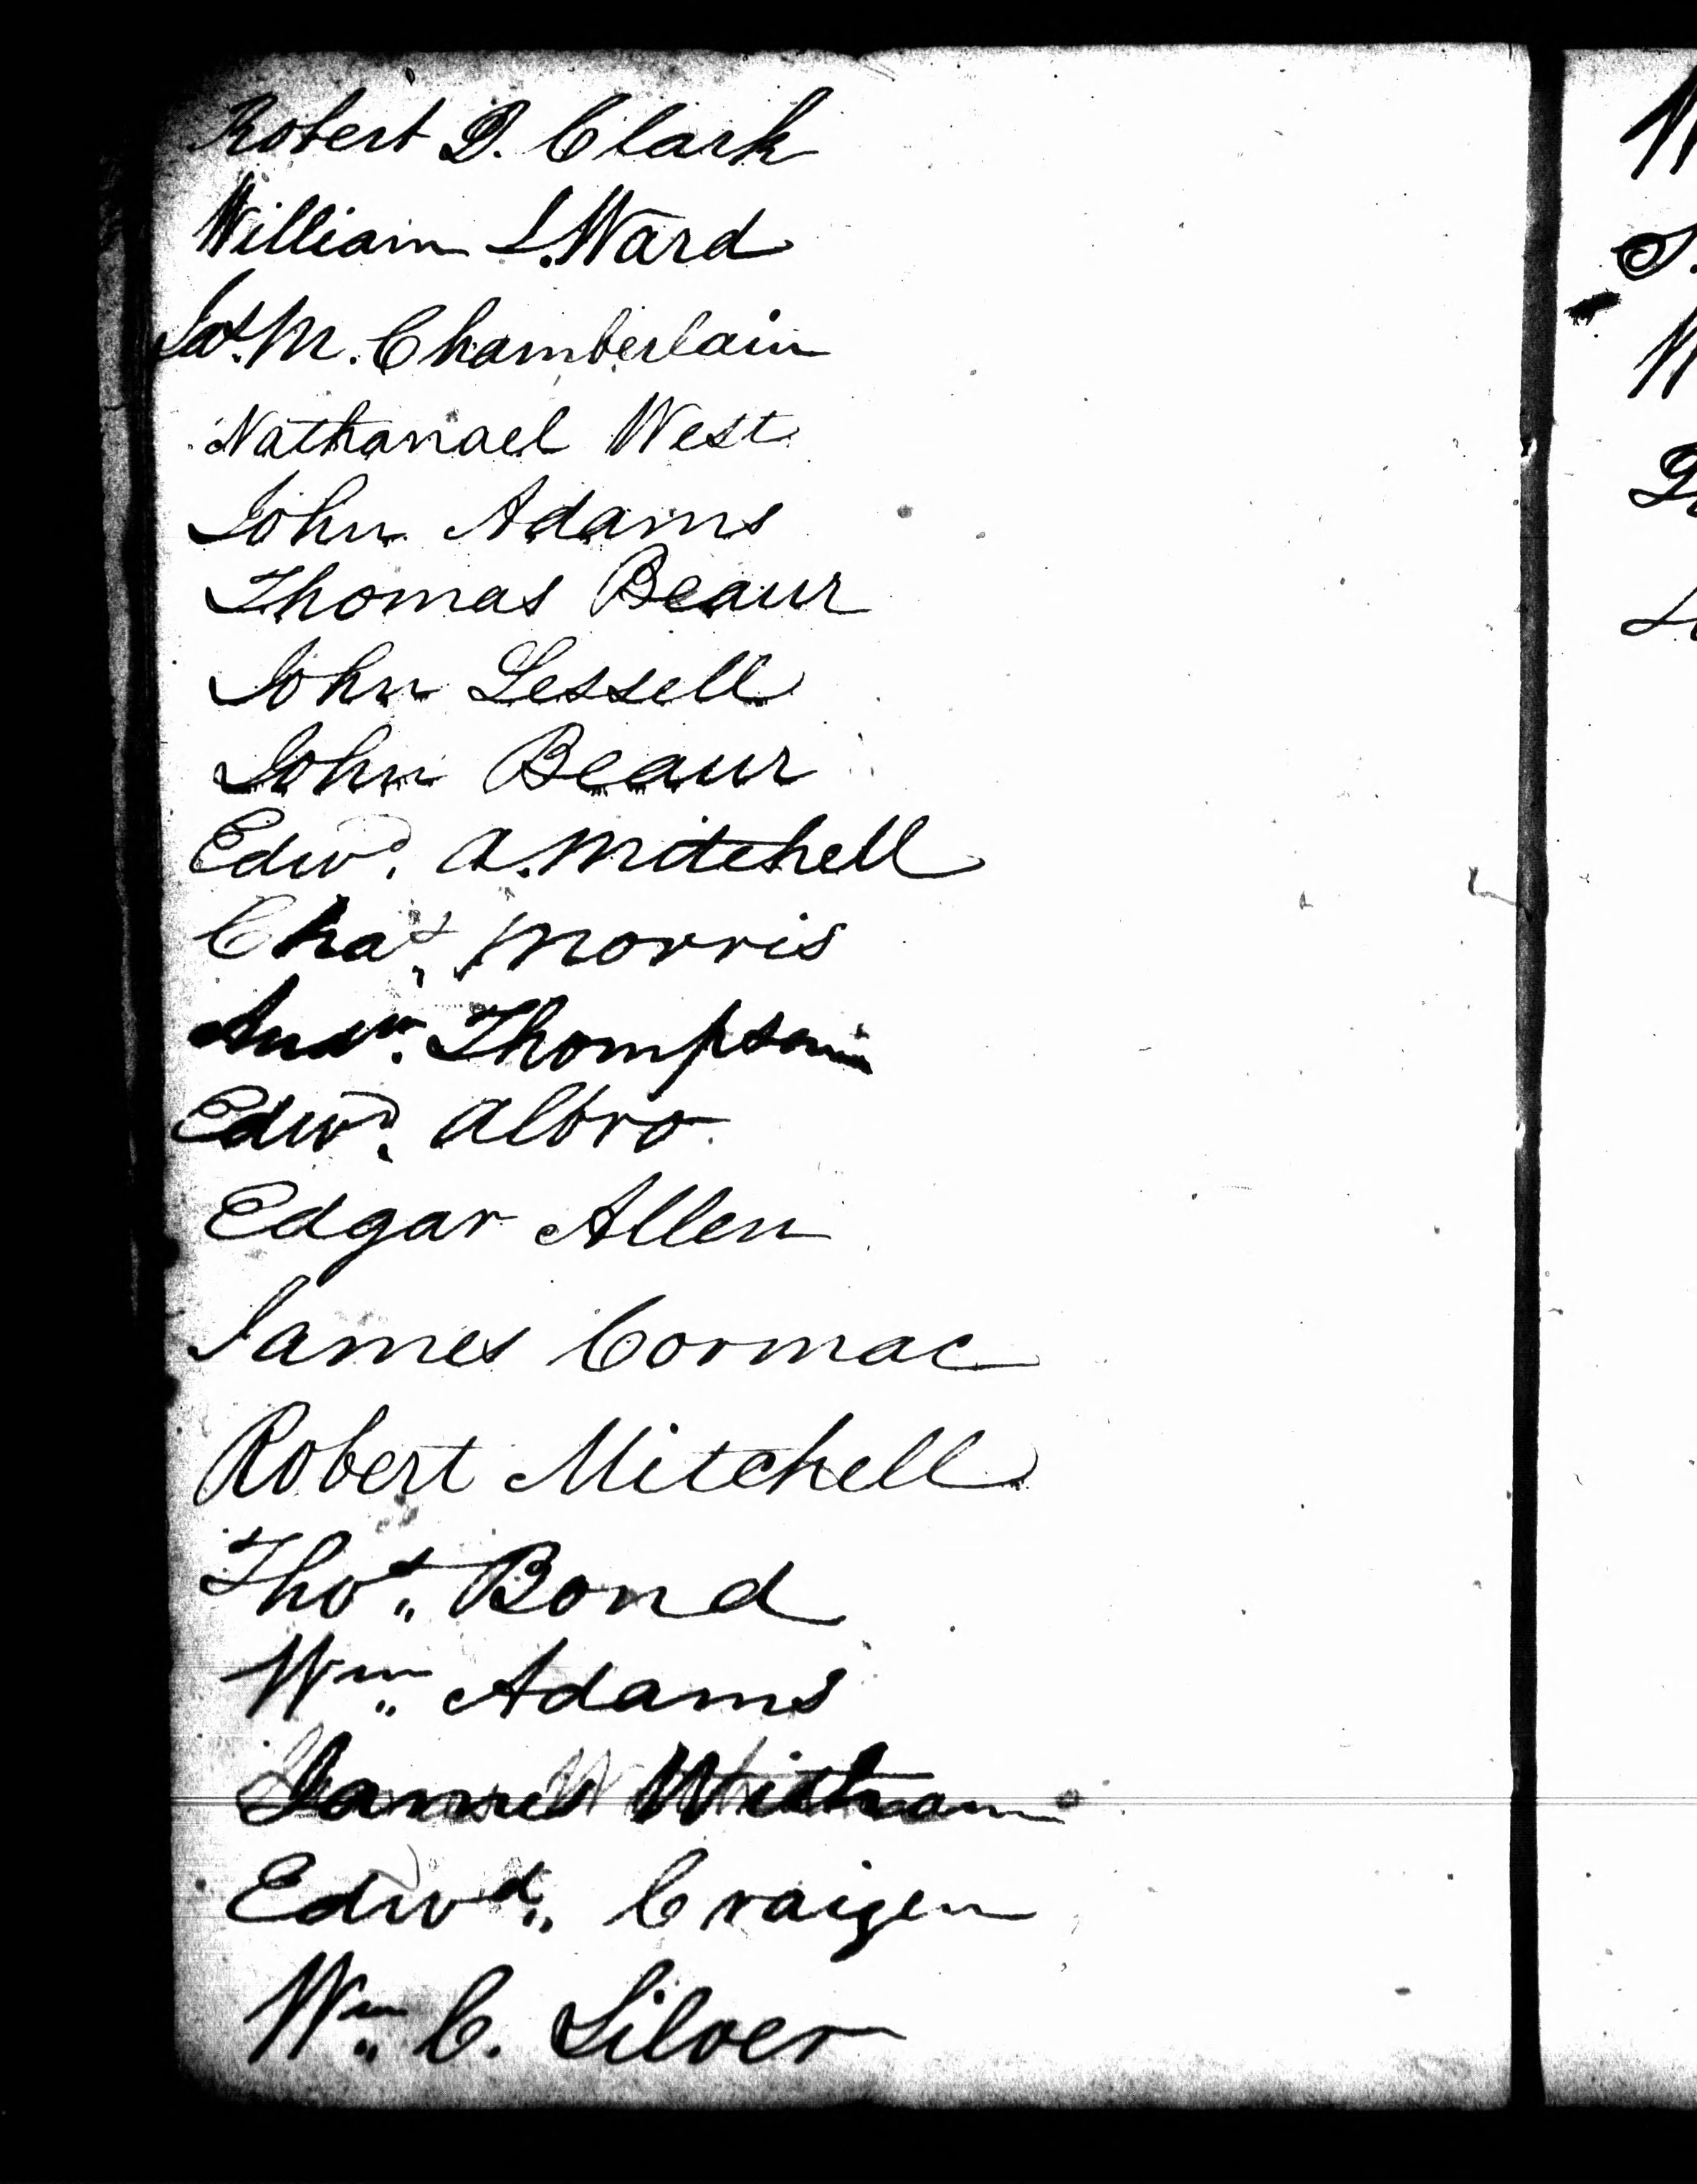 Robert D. Clark
William L. Ward
Jas. M. Chamberlain
Nathanael West
John Adams
Thomas Beaur
John Lessell
John Beaur
Edwd. A. Mitchell
Chas. Morris
Andw. Thompson
Edwd. Albro
Edgar Allen
James Cormac
Robert Mitchell
Thos. Bond
Wm. Adams
Edwd. Craigen
Wm. C. Silver